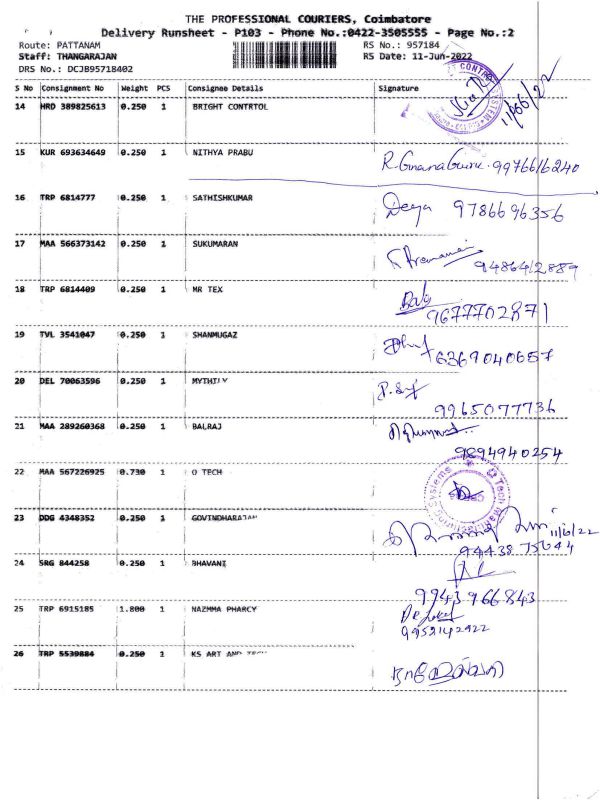 THE PROFESSIONAL COURIERS, Coimbatore
Delivery Runsheet - P103 - Phone No.:0422-3505555 - Page No.:2
Route: PATTANAM RS No.: 957184
Staff: THANGARAJAN RS Date: 11-Jun-2022
DRS No.: DCJB95718402
S No Consignment No Weight PCS Consignee Details Signature
14 HRD 389825613 0.250 1 BRIGHT CONTRTOL
11/06/22
15 KUR 693634649 0.250 1 NITHYA PRABU
R. Gnana Guru. 9976616240
16 TRP 6814777 0.250 1 SATHISHKUMAR
9786696356
17 MAA 566373142 0.250 1 SUKUMARAN
9486412889
18 TRP 6814409 0.250 1 MR TEX
9677702871
19 TVL 3541047 0.250 1 SHANMUGAZ
6369040657
20 DEL 70063596 0.250 1 MYTHILY
9965077736
21 MAA 289260368 0.250 1 BALRAJ
9894940254
22 MAA 567226925 0.730 1 O TECH
23 DDG 4348352 0.250 1 GOVINDHARAJAN
11/6/22
24 SRG 844258 0.250 1 BHAVANI
9943966843
25 TRP 6915185 1.800 1 NAZMMA PHARCY
26 TRP 5539884 0.250 1 KS ART AND TECH